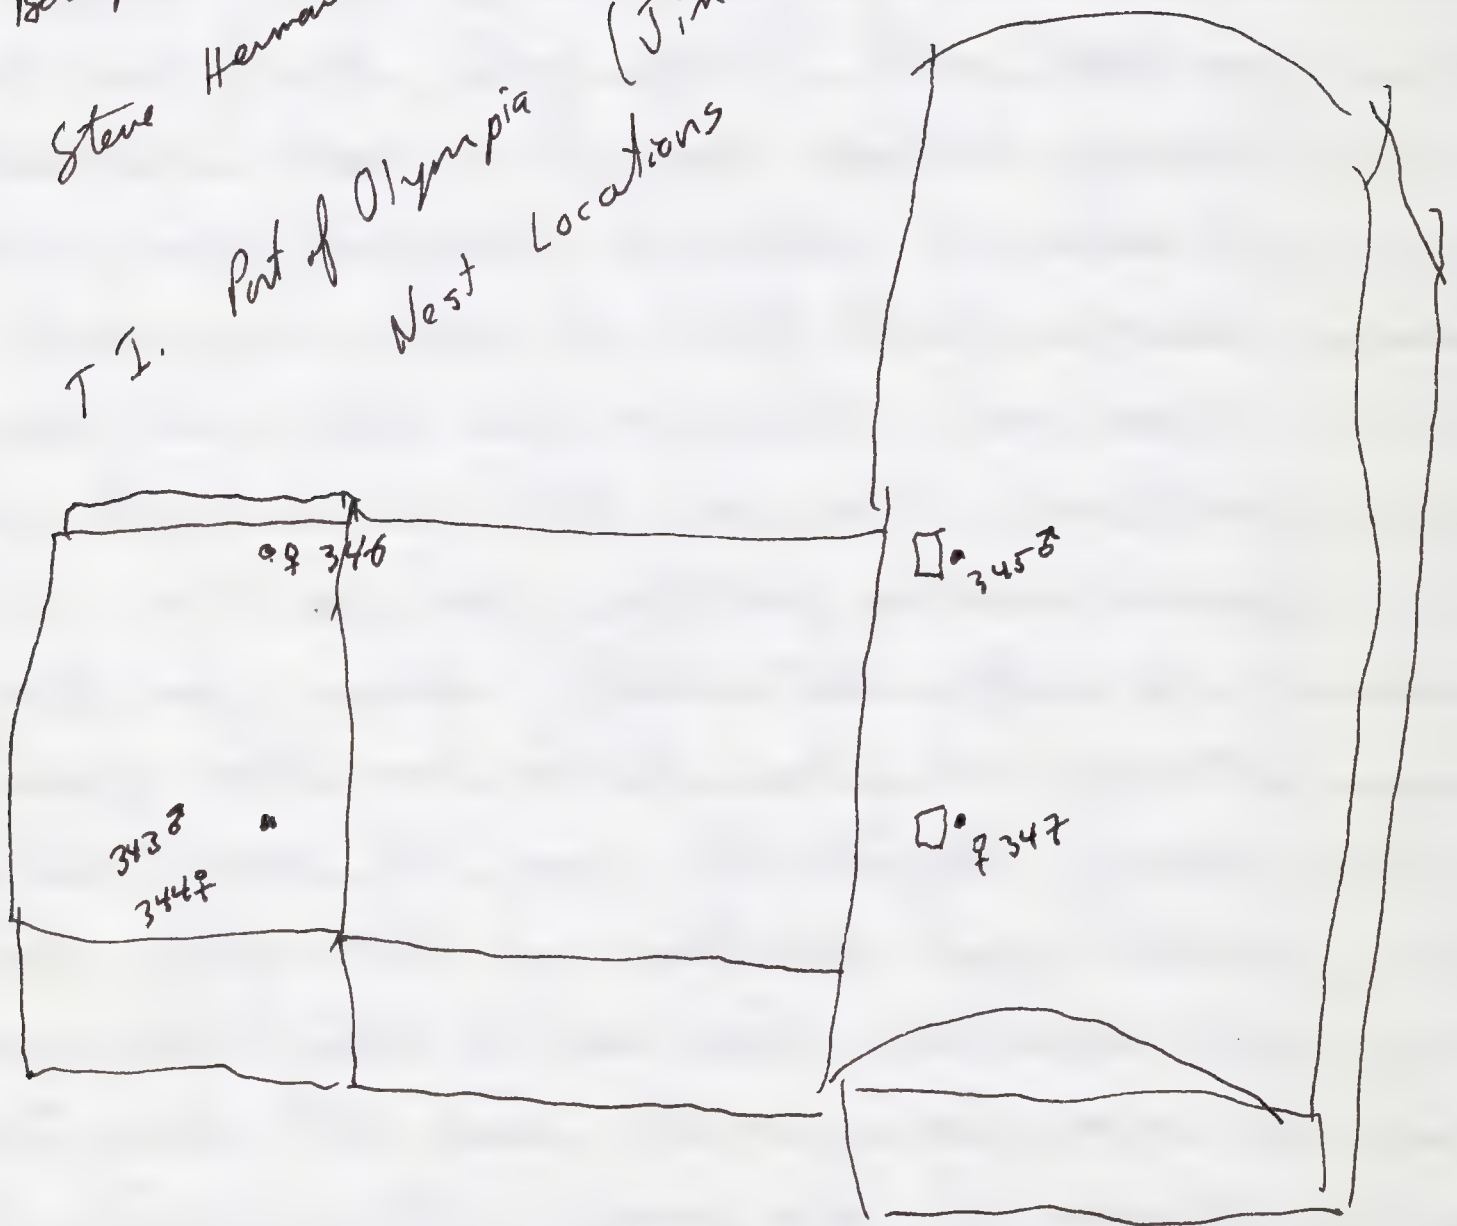 Steve Herman
(Jim
T I. Port of Olympia
Nest Locations
♀ 346
345♂
343♂
344♀
♀ 347